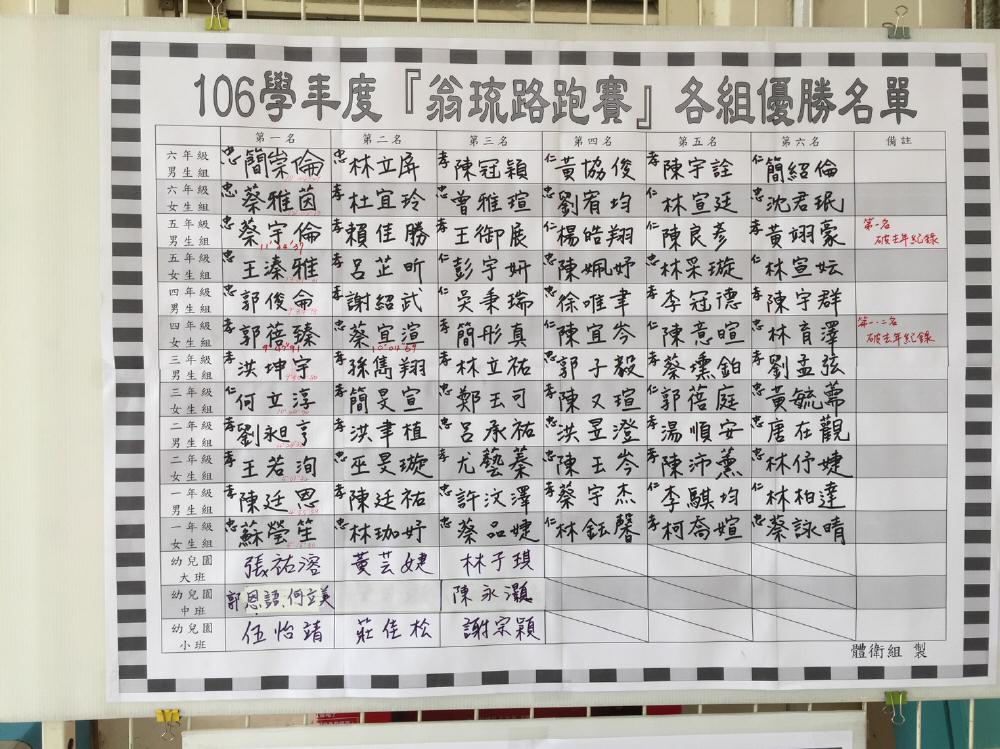 106學年度『翁琉路跑賽』各組優勝名單
第一名 第二名 第三名 第四名 第五名 第六名 備註
六年級男生組 忠簡崇倫 忠林立屏 孝陳冠穎 仁黃協俊 孝陳宇詮 仁簡紹倫
六年級女生組 忠蔡雅茵 孝杜宜玲 忠曾雅瑄 忠劉宥均 仁林宣廷 忠沈君珉
五年級男生組 忠蔡宇倫 孝賴佳勝 孝王御展 仁楊皓翔 仁陳良彥 孝黃翊豪 第一名破去年紀錄
11'44"39
五年級女生組 忠王溱雅 忠呂芷昕 仁彭宇妍 忠陳姵妤 忠林采璇 仁林宣妘
四年級男生組 忠郭俊侖 孝謝紹武 仁吳秉瑞 忠徐唯聿 孝李冠德 孝陳宇群
四年級女生組 孝郭蓓臻 忠蔡宜渲 孝簡彤真 仁陳宜岑 仁陳意暄 忠林育澤 第一、二名破去年紀錄
10'04"59
三年級男生組 孝洪坤宇 孝孫雋翔 孝林立祐 忠郭子毅 孝蔡壎鉑 孝劉孟弦
三年級女生組 仁何立淳 孝簡旻宣 忠鄭玉可 孝陳又瑄 仁郭蓓庭 忠黃毓薷
二年級男生組 孝劉昶亨 孝洪聿植 忠呂承祐 忠洪昱澄 孝湯順安 忠唐在觀
二年級女生組 孝王若洵 忠巫旻璇 孝尤藝蓁 忠陳玉岑 孝陳沛薰 忠林伃婕
一年級男生組 孝陳廷恩 孝陳廷祐 忠許汶澤 孝蔡宇杰 仁李騏均 仁林柏達
一年級女生組 忠蘇瑩笙 忠林珈妤 忠蔡品婕 仁林鈺馨 孝柯喬媗 忠蔡詠晴
幼兒園大班 張祐溶 黃芸婕 林于琪
幼兒園中班 郭恩語、何立美 陳永灝
幼兒園小班 伍怡靖 莊佳松 謝宗穎
體衛組 製